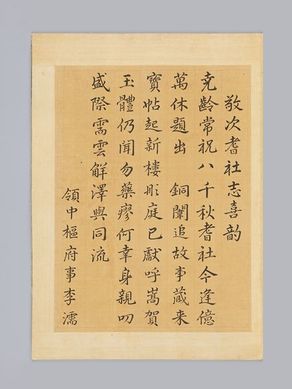 敬次耆社志喜韵
堯齡常祝八千秋耆社今逢億
萬休題出 銅闈追故事藏来
寶帖起新樓彤庭已獻呼嵩賀
玉體仍聞勿藥瘳何幸身親叨
盛際需雲鮮澤與同流
領中樞府事李濡